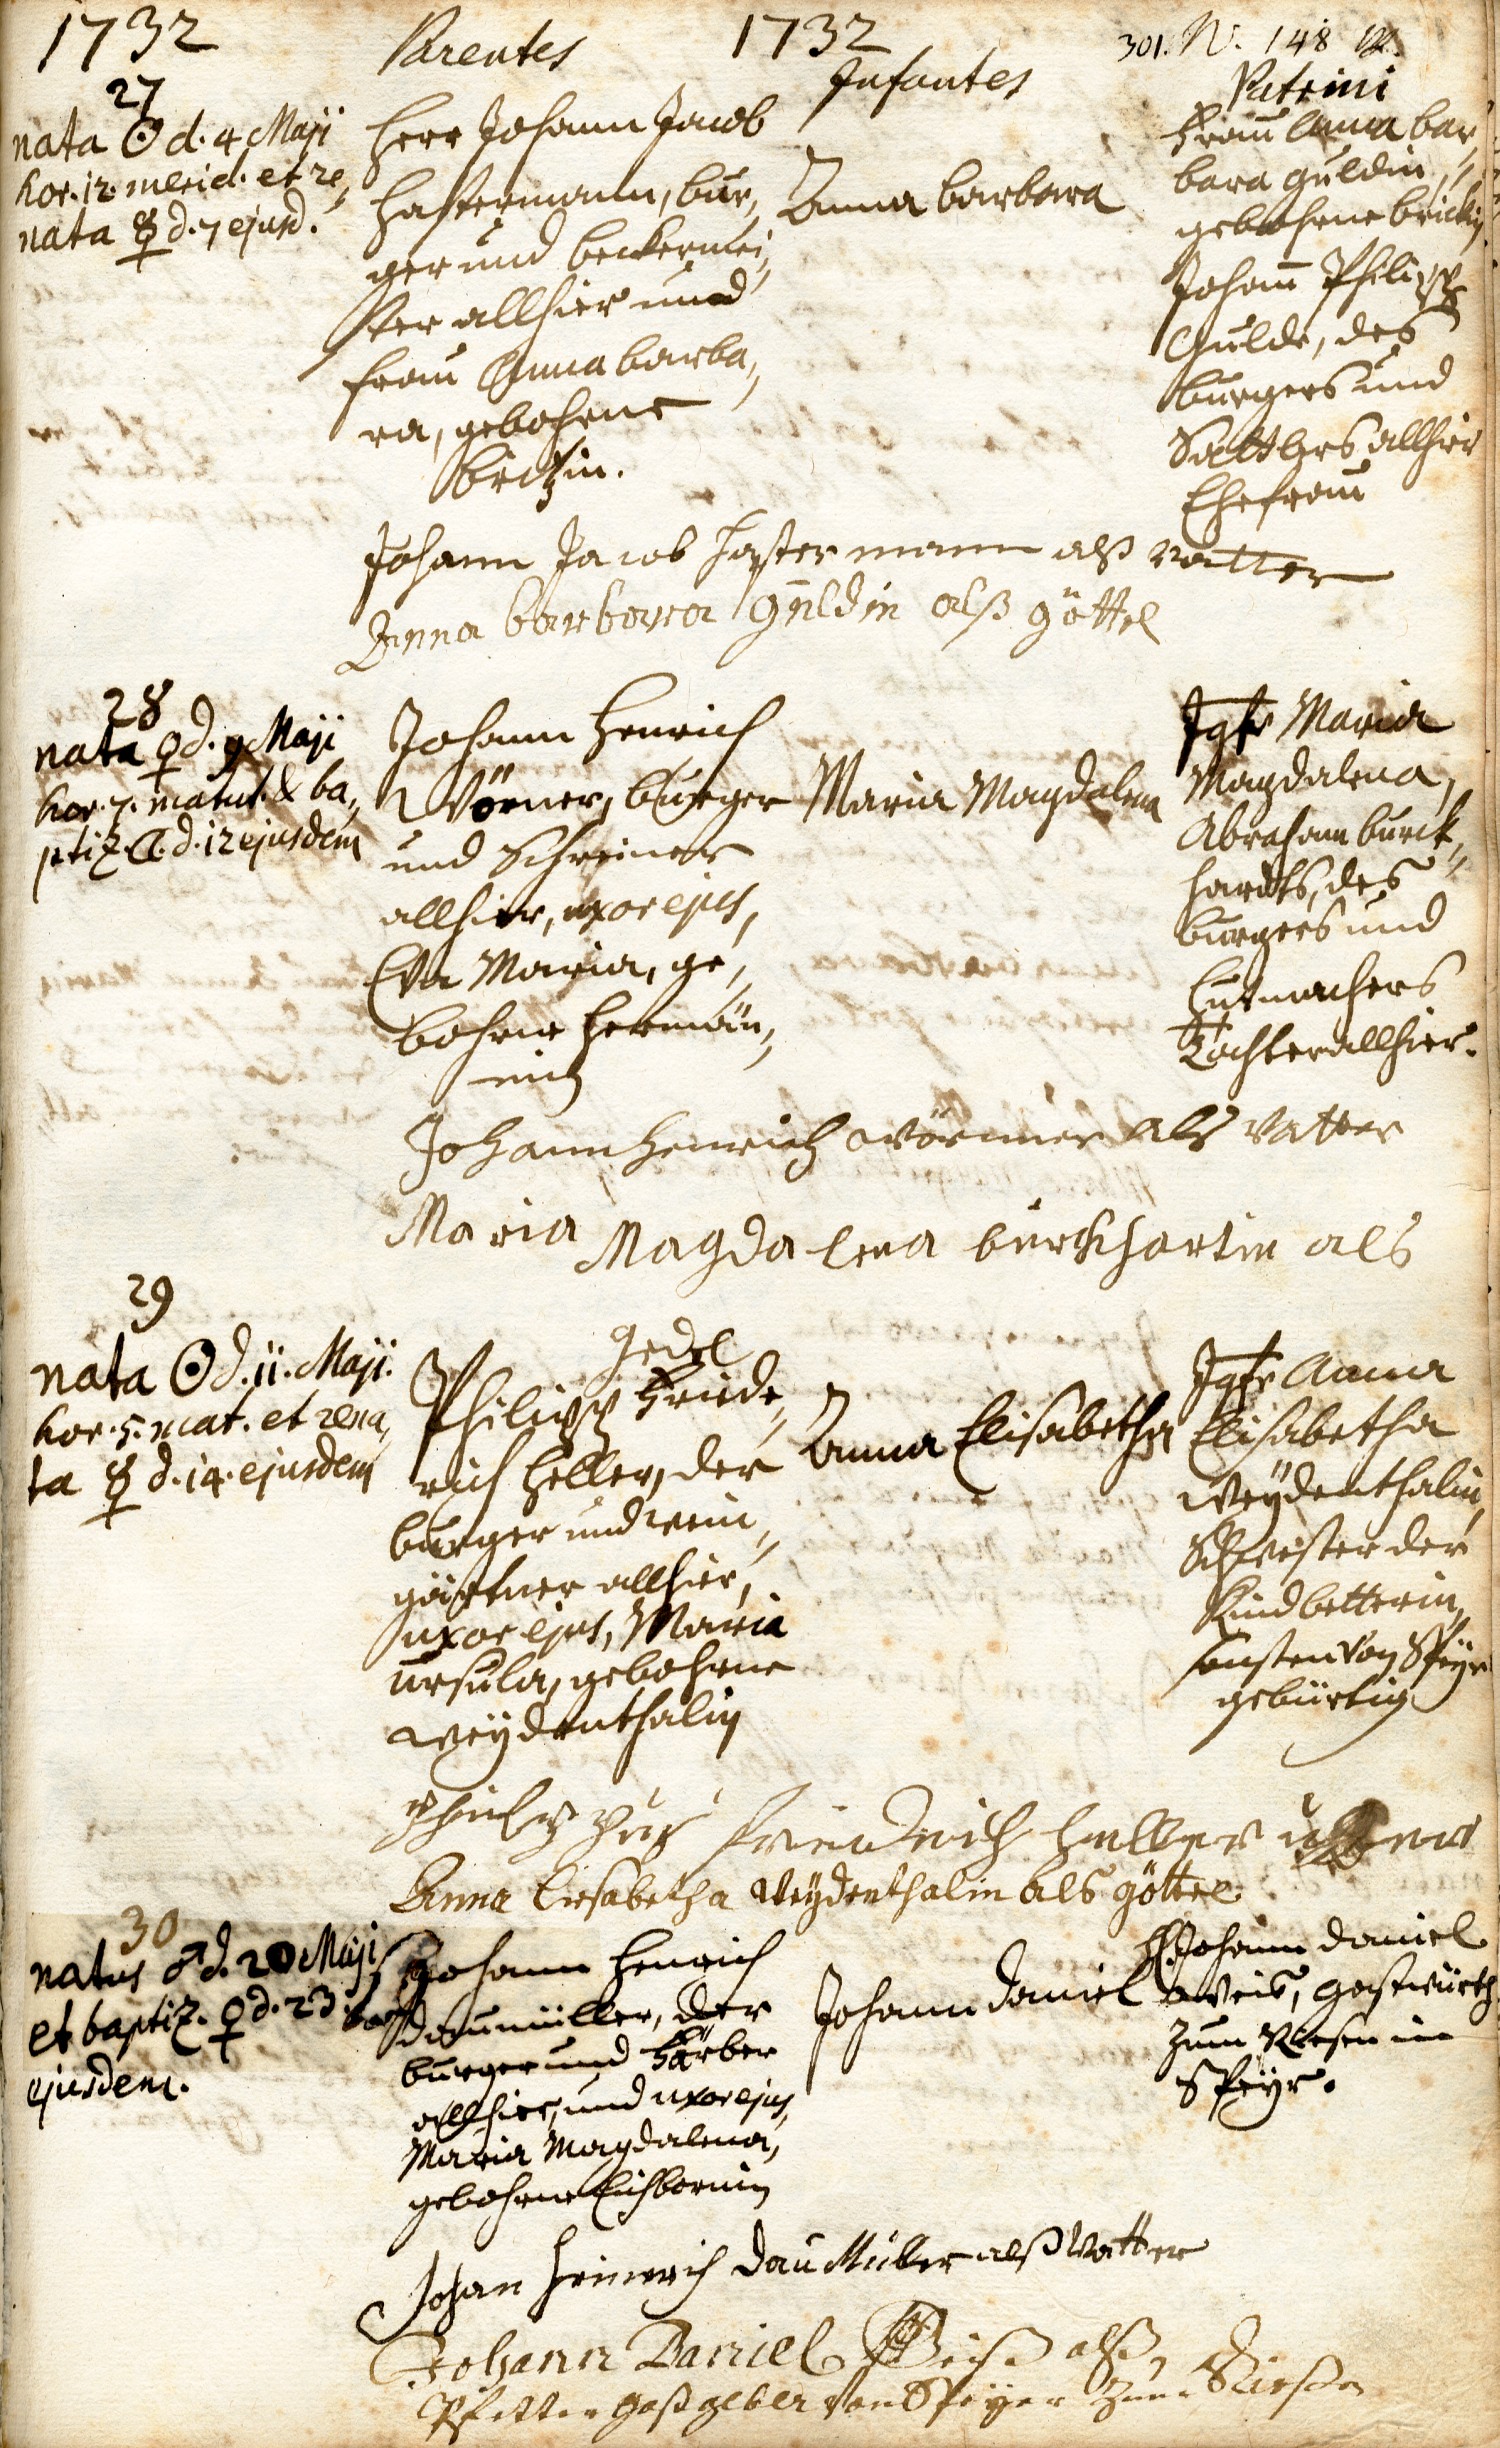 1732
Parentes
1732
Infantes
301. N. 148
Patrini
27
nata ☉ d. 4 Maji
hor. 12. merid. et re„
nata ☿ d. 7 ejusd.
Herr Johann Jacob
Hastermann, bur„
ger und beckermei„
ster allhier und
Frau Anna barba„
ra, gebohrne
britzin.
Anna barbara
Frau Anna bar„
bara Guldin,
gebohrne brickin
Johann Philipp
Gulde, des
burgers und
Sattlers allhier
Ehefrau
Johann Jacob Hastermann alß vatter
Anna barbara guldin alß göttel
28
nata ♀ d. 9 Maji
hor. 7. matut. & ba„
ptiz. ☾ d. 12 ejusdem
Johann Henrich
Wörner, burger
und Schreiner
allhier, uxor ejus,
Eva Maria, ge„
bohrne Hermän„
nin
Maria Magdalena
Jgfr Maria
Magdalena,
Abraham burck„
hardts, des
burgers und
Hutmachers
Tochter allhier.
Johann Henrich wörner als vatter
Maria Magdalena burckhartin als
gedel
29
nata ☉ d. 11. Maji.
hor. 5. mat. et rena„
ta ☿ d. 14. ejusdem
Philipp Friede„
rich Heller, der
burger und wein„
gärtner allhier,
uxor ejus, Maria
Ursula, gebohrne
Weydenthalin
Anna Elisabetha
Jgfr Anna
Elisabetha
Weydenthalin,
Schwester der
Kindbetterin,
sonsten von Speyr
gebürtig
Friedrich Heller
Anna Elisabetha Weydenthalin als göttel
30
natus ♂ d. 20 Maji
et baptiz. ♀ d. 23
ejusdem.
Johann Henrich
Daumüller, der
burger und Färber
allhier, und uxor ejus,
Maria Magdalena,
gebohrne Eichbornin
Johann Daniel
H. Johann Daniel
Weis, Gastwürth
zum Riesen in
Speyr.
Johan Heinrich Dau Müller alß Vatter
Johann Daniel Weiß alß
Pfetter gastgeber von Speyer zum Rießen